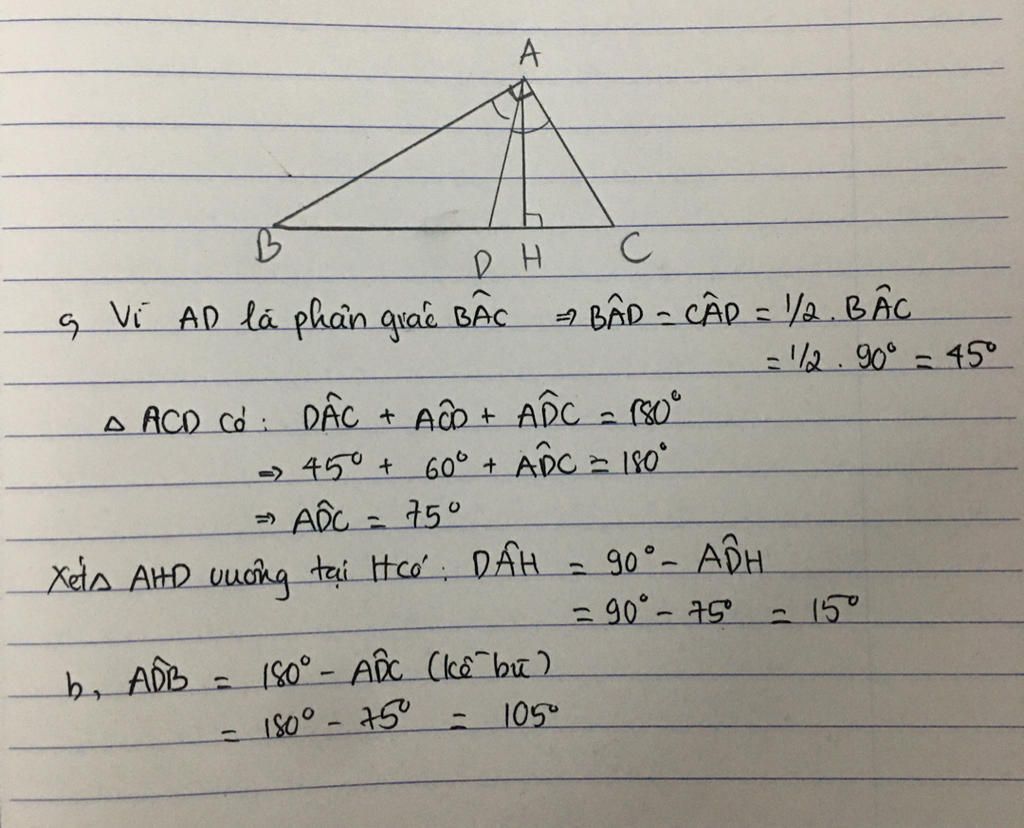 A
B
D H
C
a, Vì AD là phân giác BÂC ⇒ BÂD = CÂD = 1/2 . BÂC
= 1/2 . 90° = 45°
Δ ACD có : DÂC + AĈD + AD̂C = 180°
⇒ 45° + 60° + AD̂C = 180°
⇒ AD̂C = 75°
Xét Δ AHD vuông tại H có : DÂH = 90° - AD̂H
= 90° - 75° = 15°
b, AD̂B = 180° - AD̂C (kề bù)
= 180° - 75° = 105°